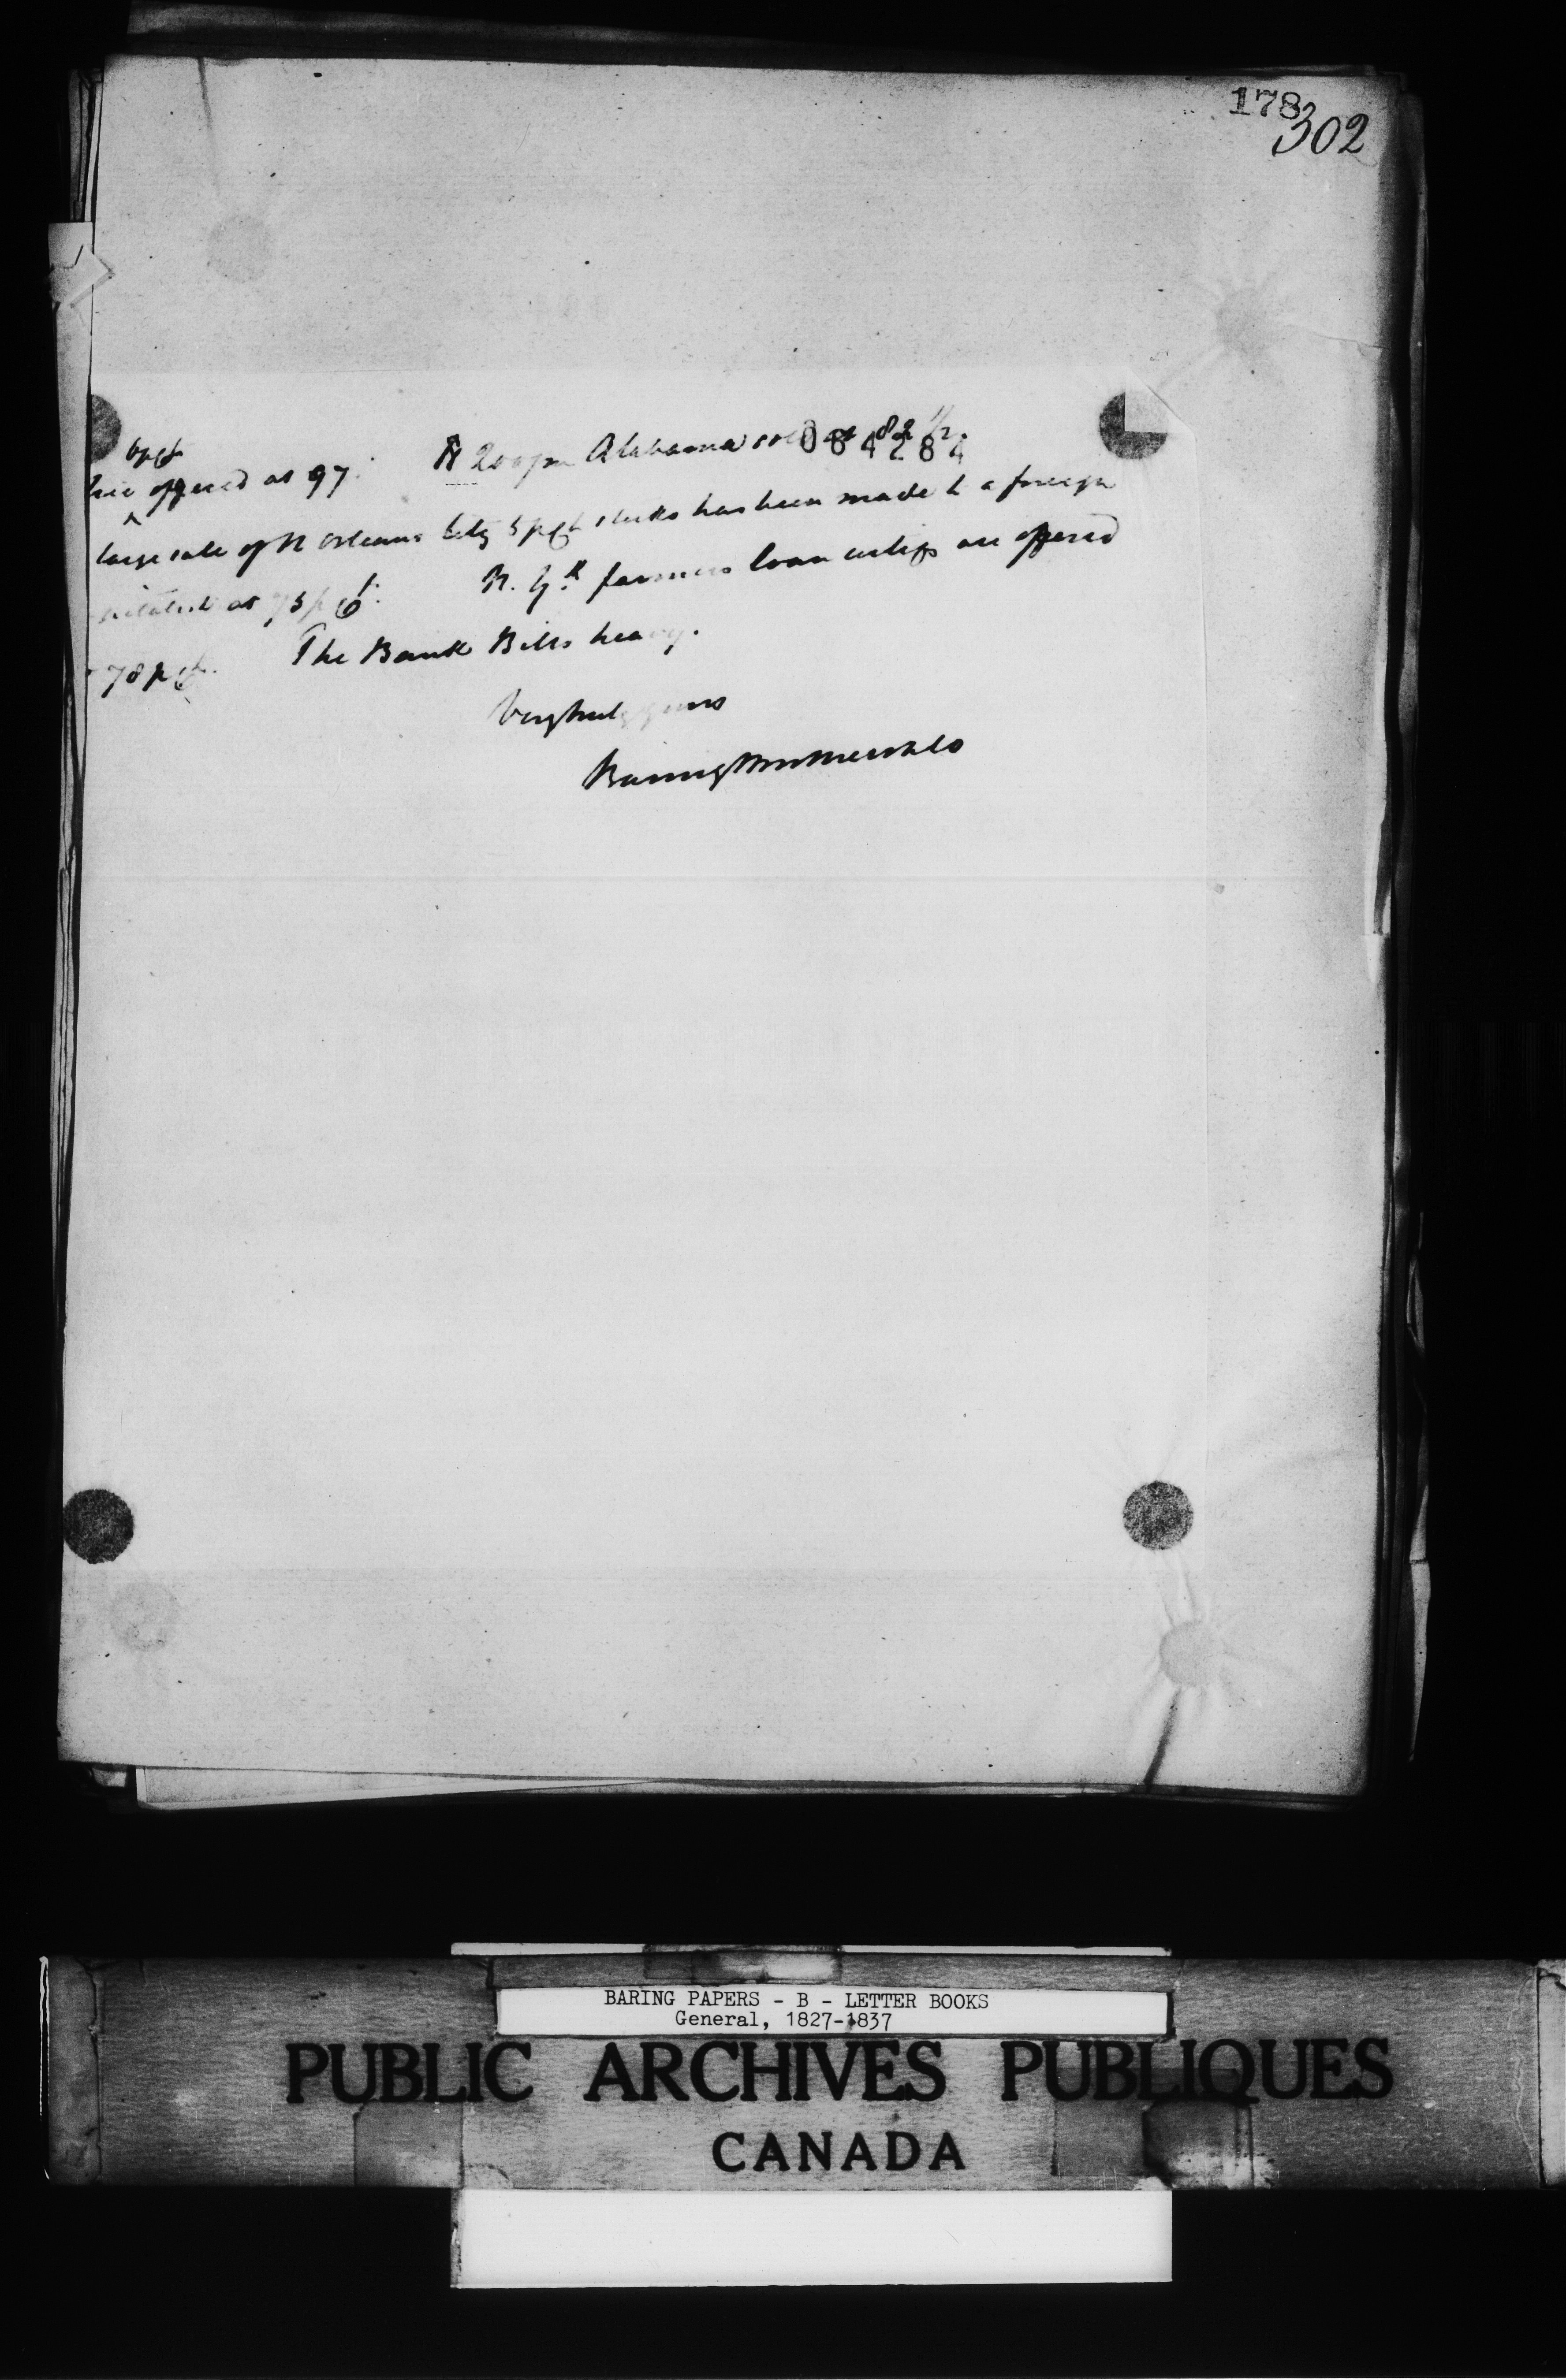 178
302
6 pct
offered at 97. A 200 pm Alabama sold at 82 1/2.
084284
large sale of N Orleans City 5 pct stocks has been made to a foreign
at 75 p Ct. N. Yk farmers loan certifs are offered
78 p Ct. The Bank Bills heavy.
Very truly yours
Baring Brothers & Co
BARING PAPERS - B - LETTER BOOKS
General, 1827-1837
PUBLIC ARCHIVES PUBLIQUES
CANADA